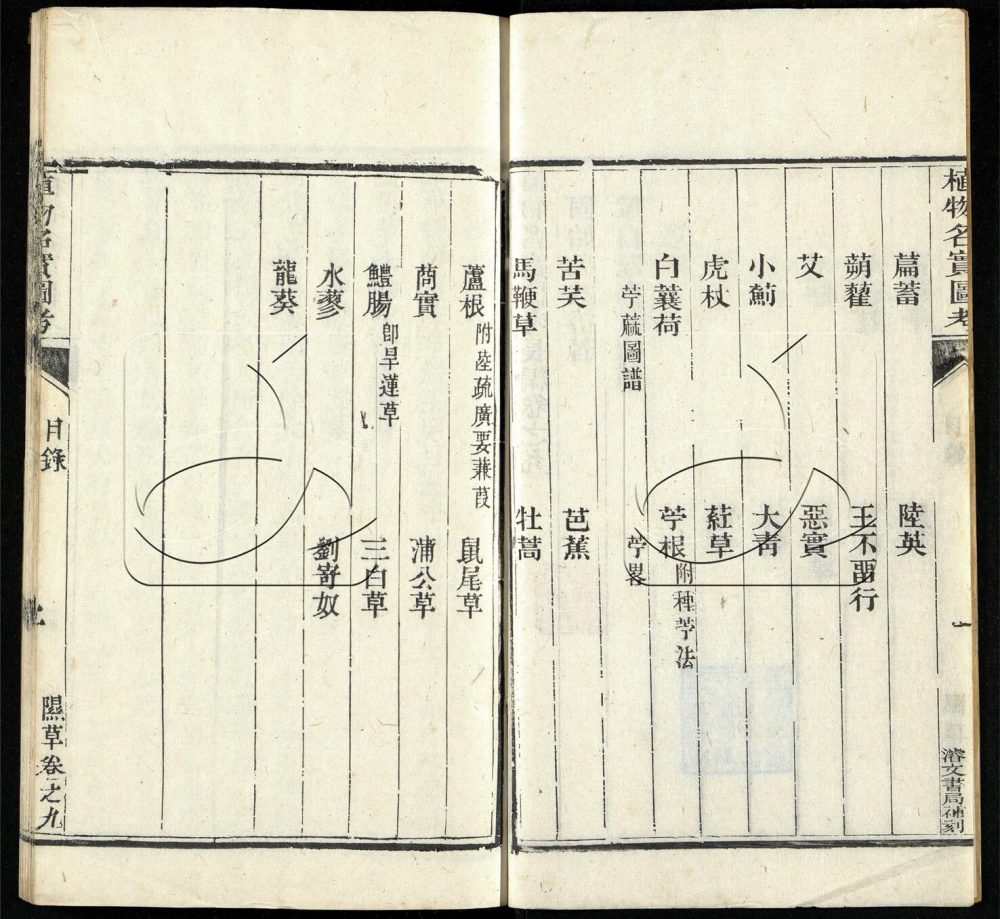 植物名實圖考
一
濬文書局補刻
萹蓄
陸英
蒴藋
王不畱行
艾
惡實
小薊
大青
虎杖
葒草
白蘘荷
苧根附種苧法
苧蔴圖譜
苧畧
苦芺
芭蕉
馬鞭草
牡蒿
蘆根附陸疏廣要蒹葭
鼠尾草
茼實
蒲公草
鱧腸卽旱蓮草
三白草
水蓼
劉寄奴
龍葵
植物名實圖考
目錄
隰草卷之九